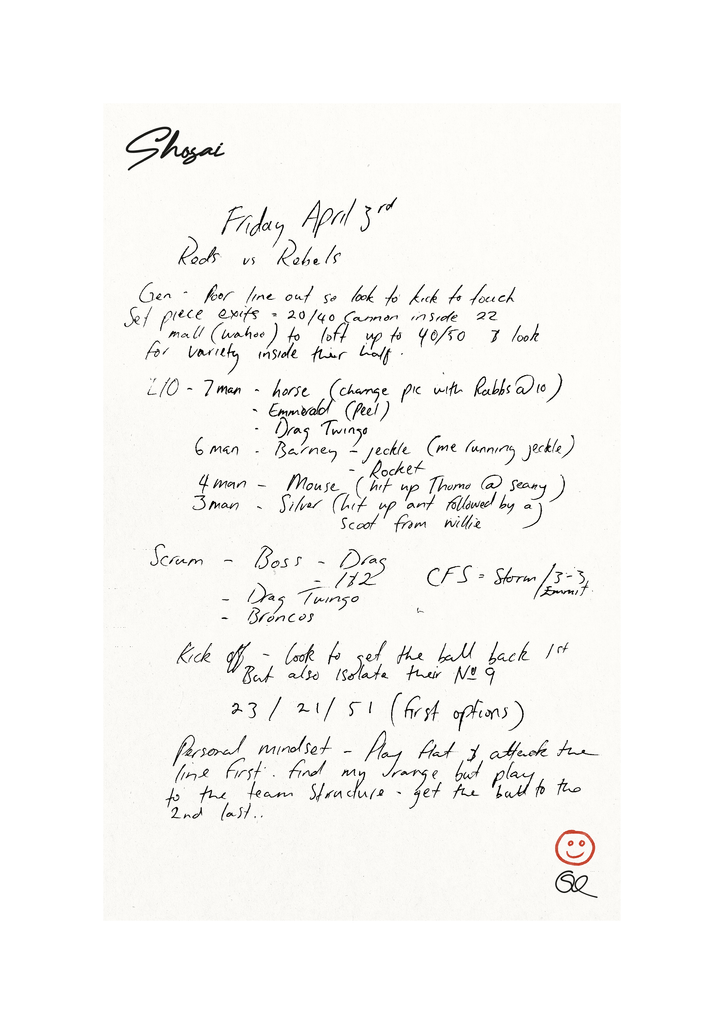 Shogai
Friday April 3rd
Reds vs Rebels
Gen - Poor line out so look to kick to touch
Set piece exits = 20/40 Cannon inside 22
mall (wahoo) to loft up to 40/50 & look
for variety inside their half.
L/O - 7 man - horse (change pic with Rabbs @ 10)
- Emmerald (Peel)
- Drag Twingo
6 man - Barney - jeckle (me running jeckle)
- Rocket
4 man - Mouse (hit up Thomo @ seany)
3 man - Silver (hit up ant followed by a
scoot from willie)
Scrum - Boss - Drag
- 1&2
CFS = Storm / 3-3
/ Emmit.
- Drag Twingo
- Broncos
Kick off - look to get the ball back 1st
But also isolate their No 9
23 / 21 / 51 (first options)
Personal mindset - Play flat & attack the
line first. find my range but play
to the team structure - get the ball to the
2nd last..